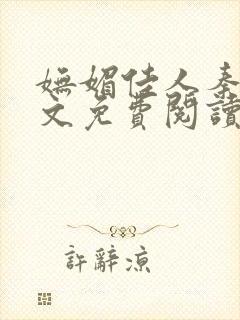 嫵媚佳人秦
文免費閱讀
許辭涼